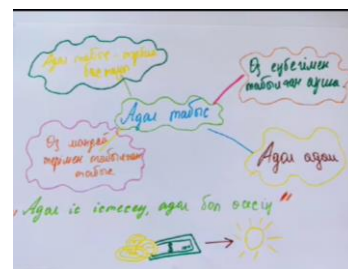 Адал табыс - турмыс
Өз еңбегімен
табылған ақша
Адал табыс
Өз маңдай
термен табылған
табыс
Адал адам
"Адал іс істесең, адал бол өсесің"